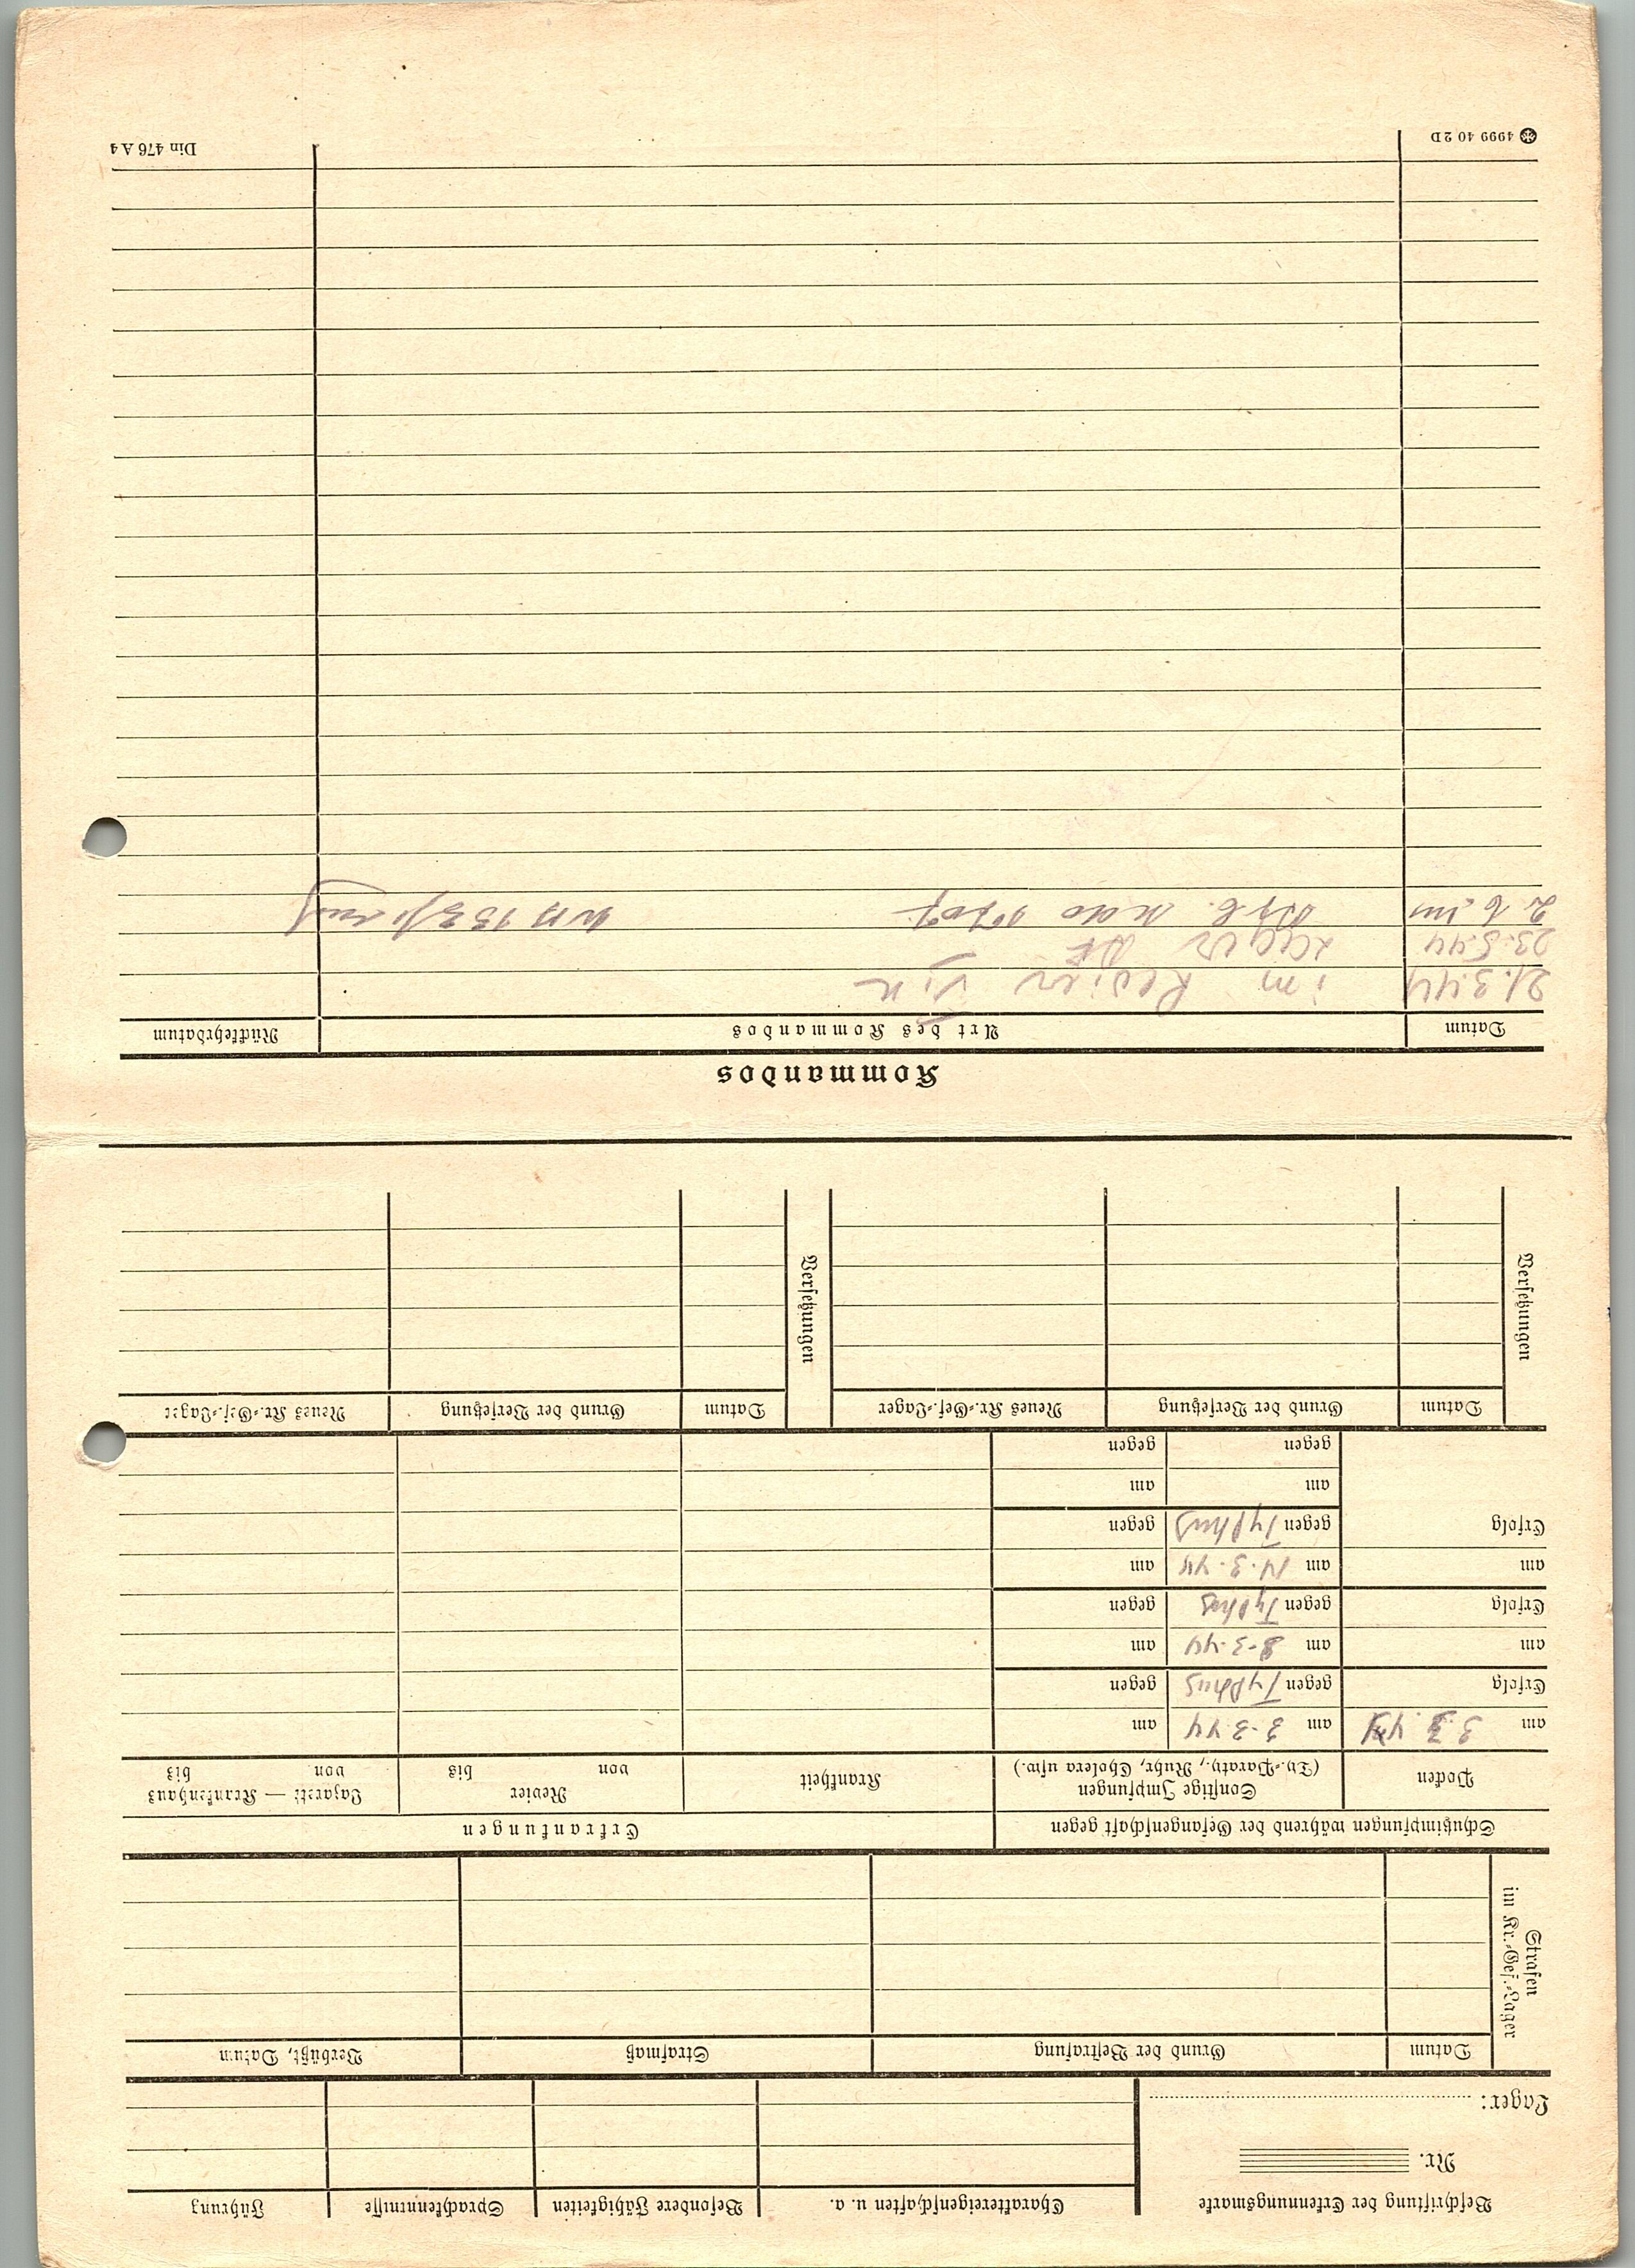 Beschriftung der Erkennungsmarke
Nr.
Lager:
Charaktereigenschaften u. a.
Besondere Fähigkeiten
Sprachkenntnisse
Führung
Strafen
im Kr.-Gef.-Lager
Datum
Grund der Bestrafung
Strafmaß
Verbüßt, Datum
Schutzimpfungen während der Gefangenschaft gegen
Erkrankungen
Pocken
Sonstige Impfungen
(Ty.-Paraty., Ruhr, Cholera usw.)
Krankheit
Revier
von bis
Lazarett — Krankenhaus
von bis
am
am 3.3.44
am
Erfolg
gegen Typhus
gegen
am
am 8.3.44
am
Erfolg
gegen Typhus
gegen
am
am 14.3.44
am
Erfolg
gegen Typhus
gegen
am
am
gegen
gegen
Versetzungen
Datum
Grund der Versetzung
Neues Kr.-Gef.-Lager
Versetzungen
Datum
Grund der Versetzung
Neues Kr.-Gef.-Lager
Kommandos
Datum
Art des Kommandos
Rückkehrdatum
21.3.44 im Revier
23.5.44
4999 40 2D
Din 476 A 4